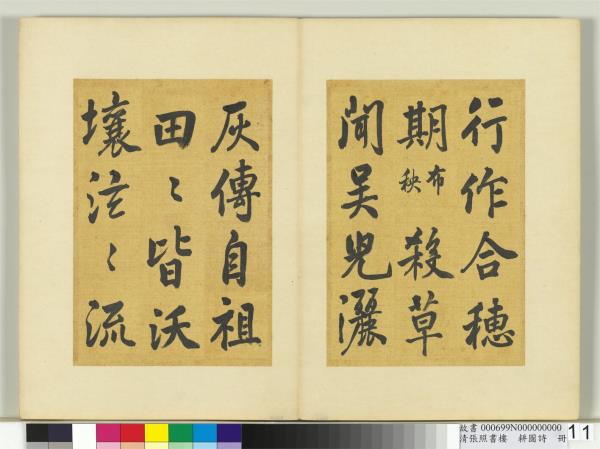 行作合穗
期布秧殺草
聞吴兒灑
灰傳自祖
田〻皆沃
壤泫〻流
故書 000699N000000000
清張照書樓　耕圖詩　冊
11